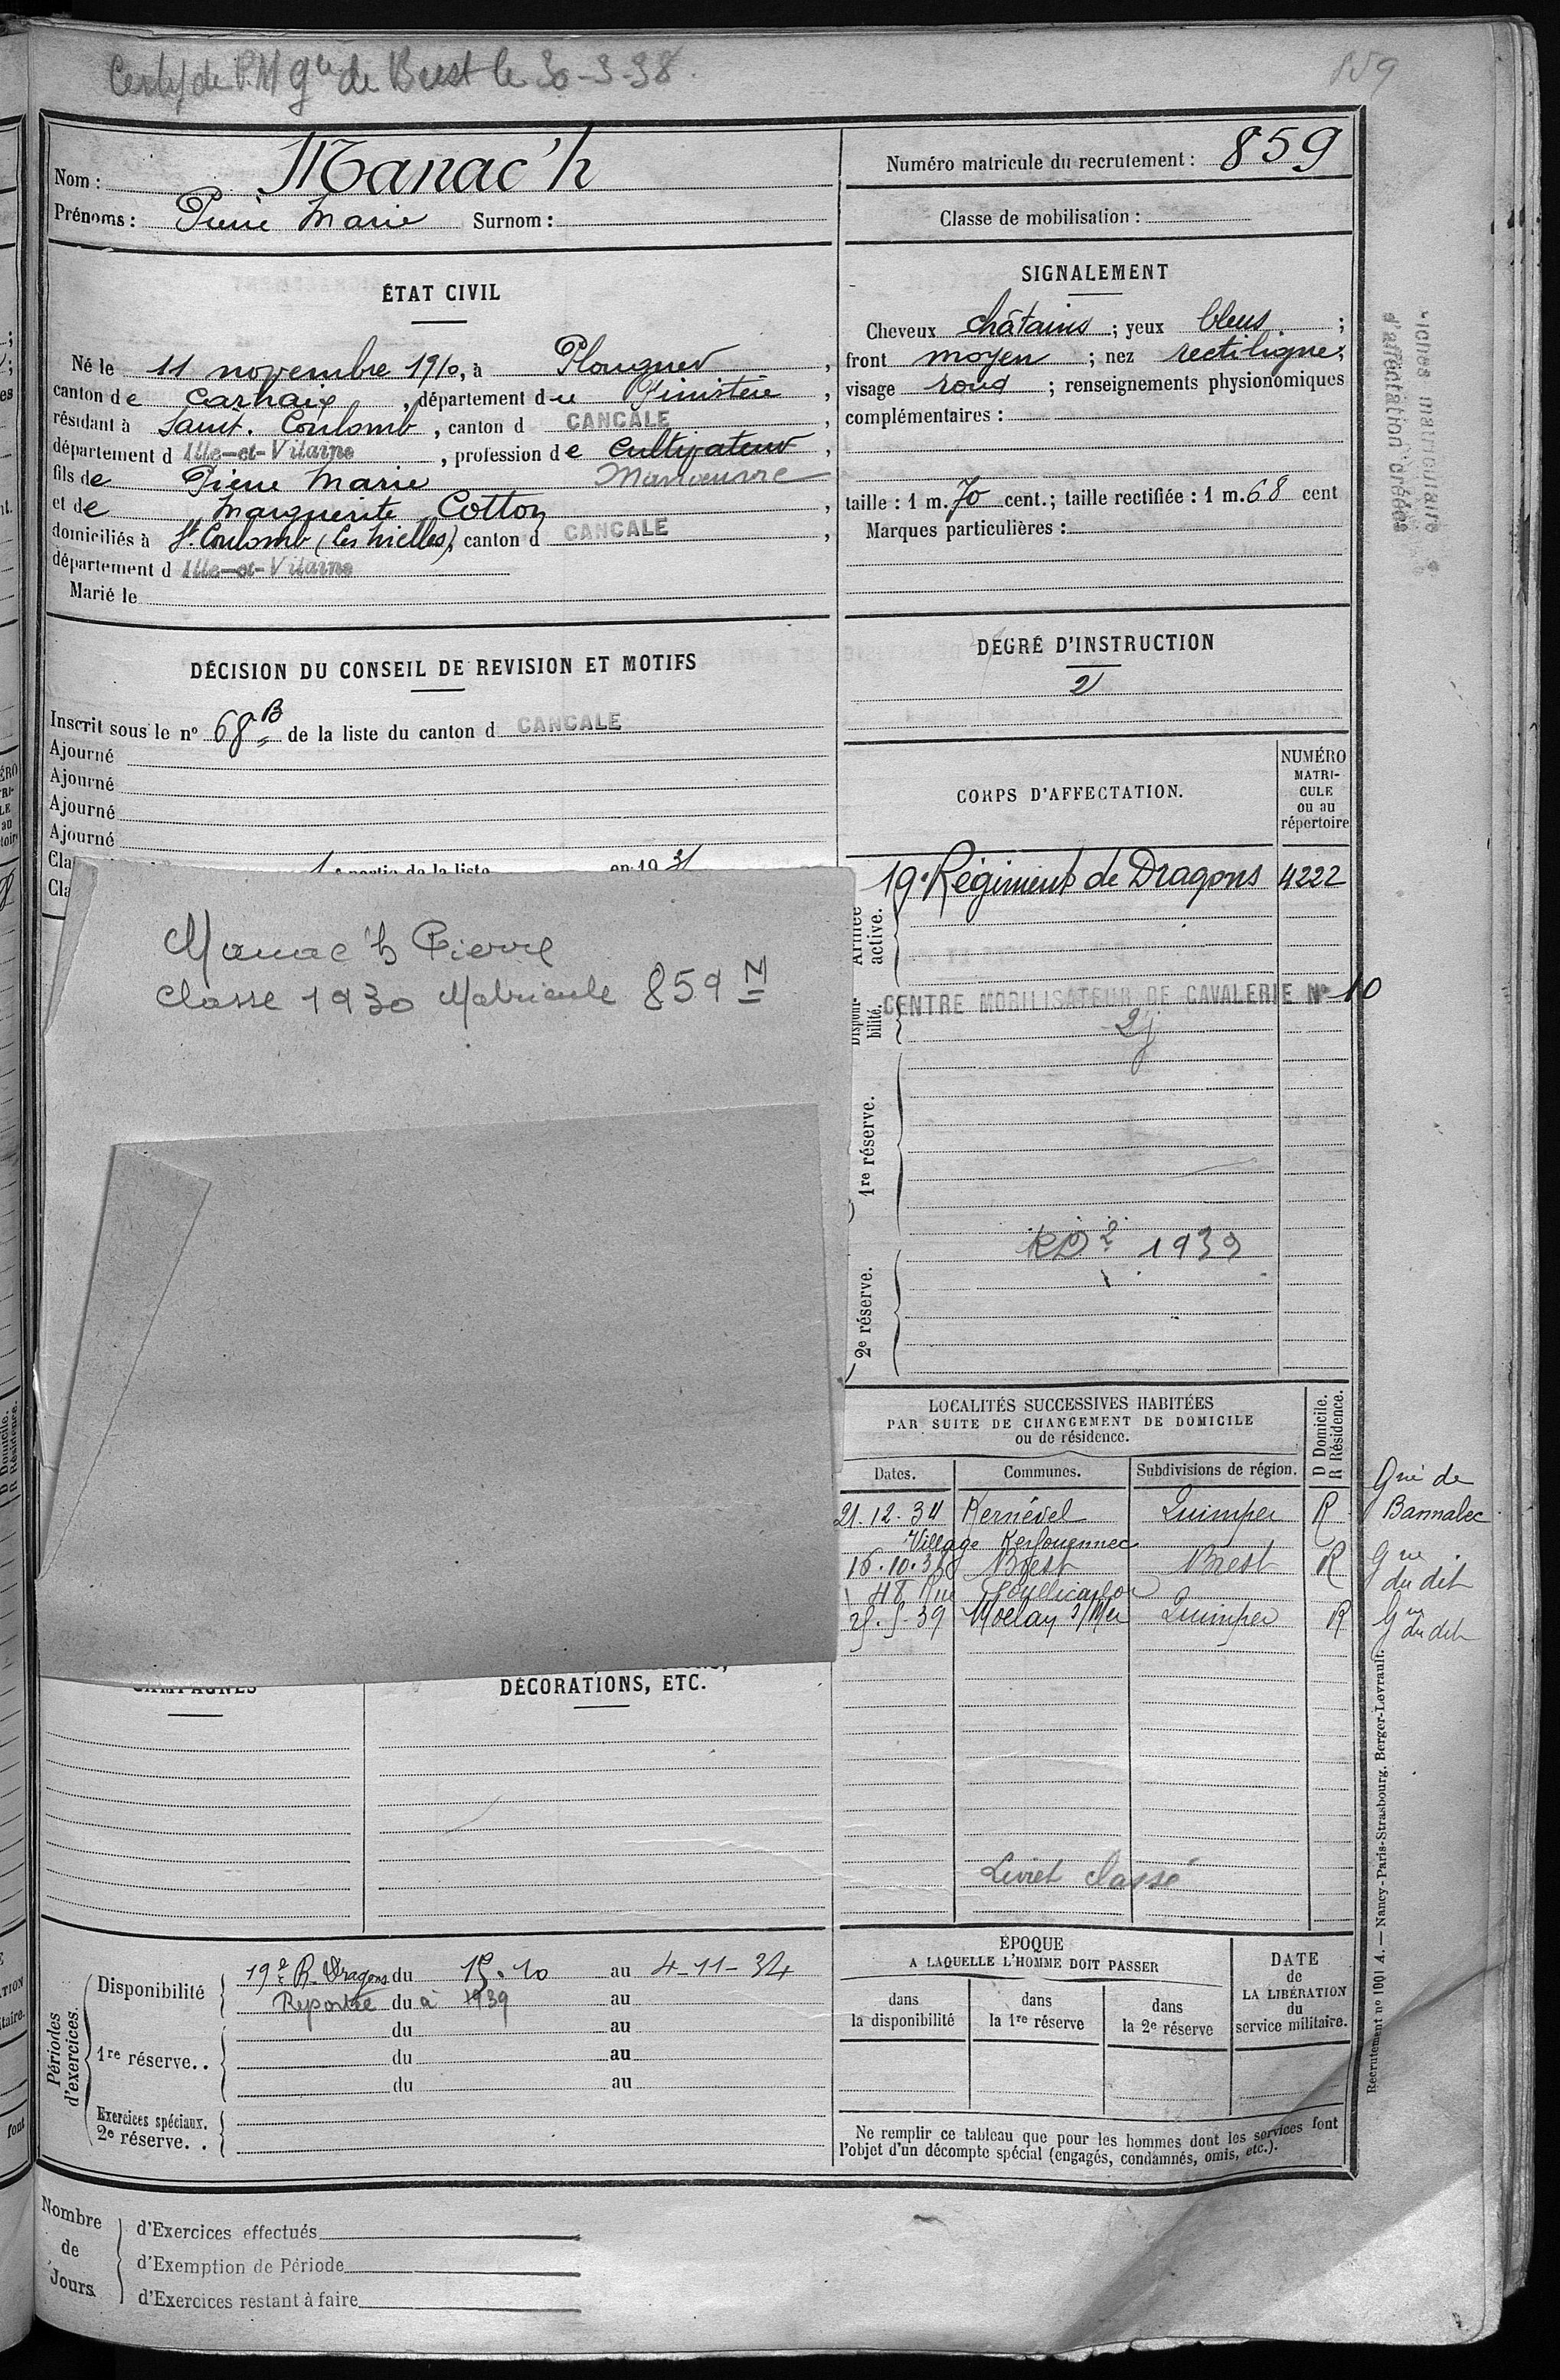 de Brest le 30-3-38.
859
Nom : Manac'h
Prénoms : Pierre Marie Surnom :
Numéro matricule du recrutement : 859
Classe de mobilisation :
ÉTAT CIVIL
Né le 11 novembre 1910, à Plouguer,
canton de Carhaix, département du Finistère,
résidant à Saint. Coulomb, canton d CANCALE,
département d Ille-et-Vilaine, profession de cultivateur,
Manoeuvre
fils de Pierre Marie
et de Marguerite Cotton,
domiciliés à St Coulomb (les Nielles), canton d CANCALE,
département d Ille-et-Vilaine
Marié le
SIGNALEMENT
Cheveux châtains ; yeux bleus ;
front moyen ; nez rectiligne ;
visage rond ; renseignements physionomiques
complémentaires :
taille : 1 m. 70 cent. ; taille rectifiée : 1 m. 68 cent
Marques particulières :
Fiches matriculaire
d'affectation créées
DÉCISION DU CONSEIL DE REVISION ET MOTIFS
Inscrit sous le nº 68 B de la liste du canton d CANCALE
Ajourné
Ajourné
Ajourné
Ajourné
Cla 1 e partie de la liste en 19 31
Cla
DEGRÉ D'INSTRUCTION
2
CORPS D'AFFECTATION.
NUMÉRO
MATRI-
CULE
ou au
répertoire
Armée active.
19e Régiment de Dragons 4222
Disponi-
bilité.
CENTRE MOBILISATEUR DE CAVALERIE Nº 10
2j
1re réserve.
RD 2 1939
2e réserve.
Manac'h Pierre
Classe 1930 Matricule 859 N
LOCALITÉS SUCCESSIVES HABITÉES
PAR SUITE DE CHANGEMENT DE DOMICILE
ou de résidence.
Dates. Communes. Subdivisions de région. D Domicile. R Résidence.
21.12.34 Kernével Quimper R Gie de Bannalec
Village
Brest Brest R du dit
48 Rue
39 Moelan s/Mer Quimper R du dit
CAMPAGNES
DÉCORATIONS, ETC.
Livret classé
Périodes d'exercices.
Disponibilité 19e R. Dragons du 15.10 au 4-11-34
Reportée du à 1939 au
1re réserve. . du au
du au
du au
Exercices spéciaux.
2e réserve. .
ÉPOQUE
A LAQUELLE L'HOMME DOIT PASSER
dans
la disponibilité
dans
la 1re réserve
dans
la 2e réserve
DATE
de
LA LIBÉRATION
du
service militaire.
Ne remplir ce tableau que pour les hommes dont les services font
l'objet d'un décompte spécial (engagés, condamnés, omis, etc.).
Recrutement nº 1001 A. — Nancy-Paris-Strasbourg, Berger-Levrault.
Nombre
de
Jours
d'Exercices effectués
d'Exemption de Période
d'Exercices restant à faire